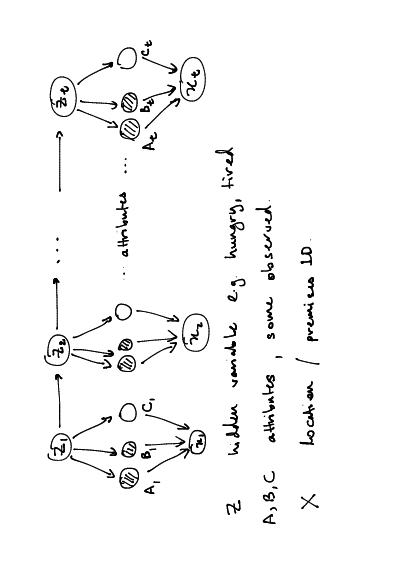 Z1 Z2 ... Zt
A1 B1 C1 ... attributes ... At Bt Ct
x1 x2 xt
Z hidden variable e.g. hungry, tired
A,B,C attributes, some observed.
X Location / premises ID.